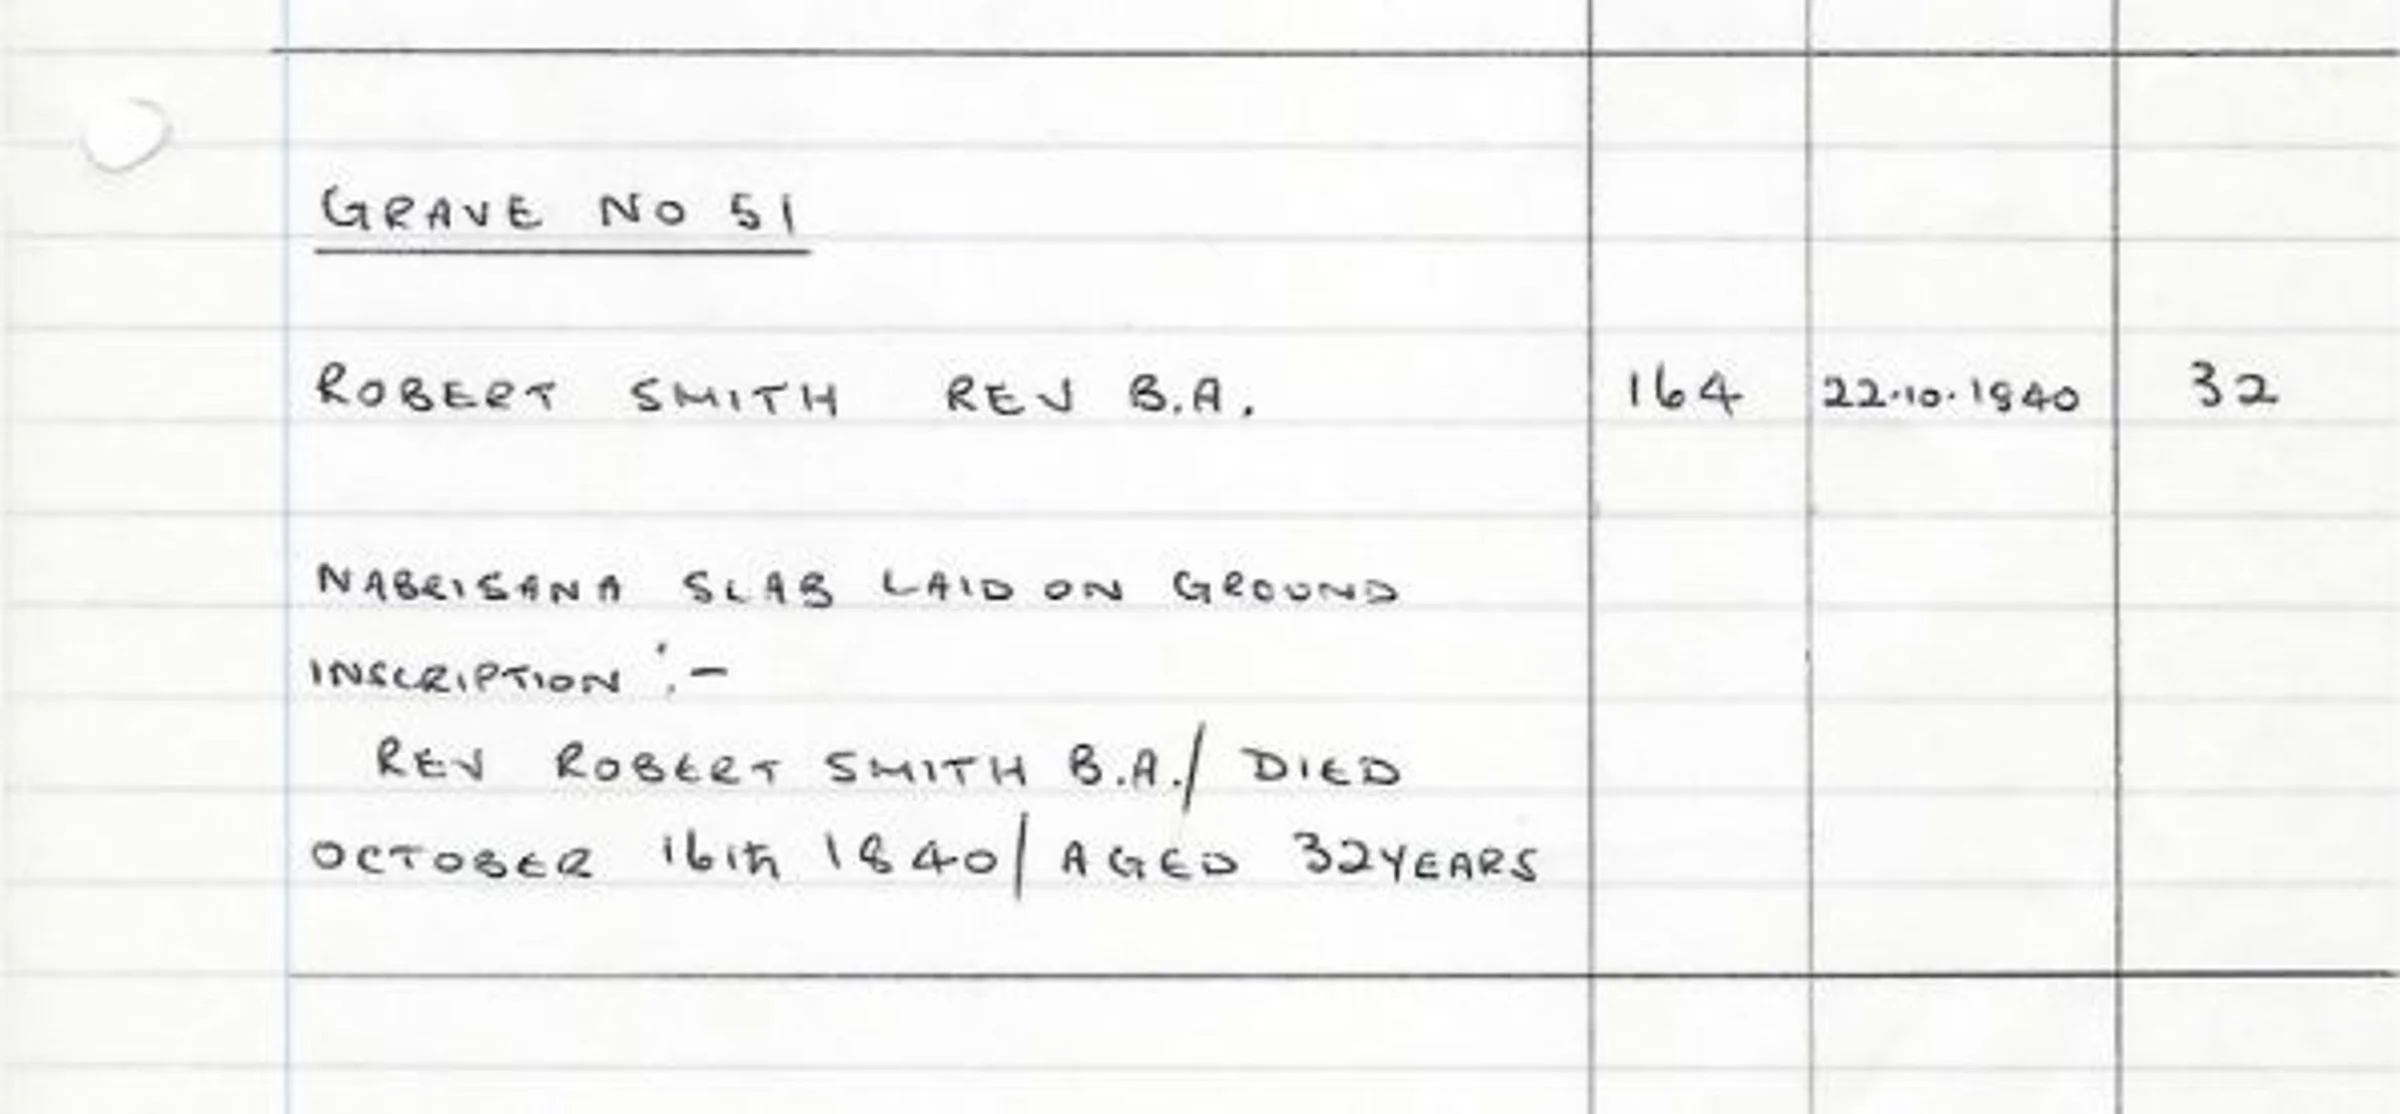 GRAVE NO 51
ROBERT SMITH REV B.A. 164 22.10.1840 32
NABRISANA SLAB LAID ON GROUND
INSCRIPTION :-
REV ROBERT SMITH B.A./ DIED
OCTOBER 16TH 1840/ AGED 32YEARS